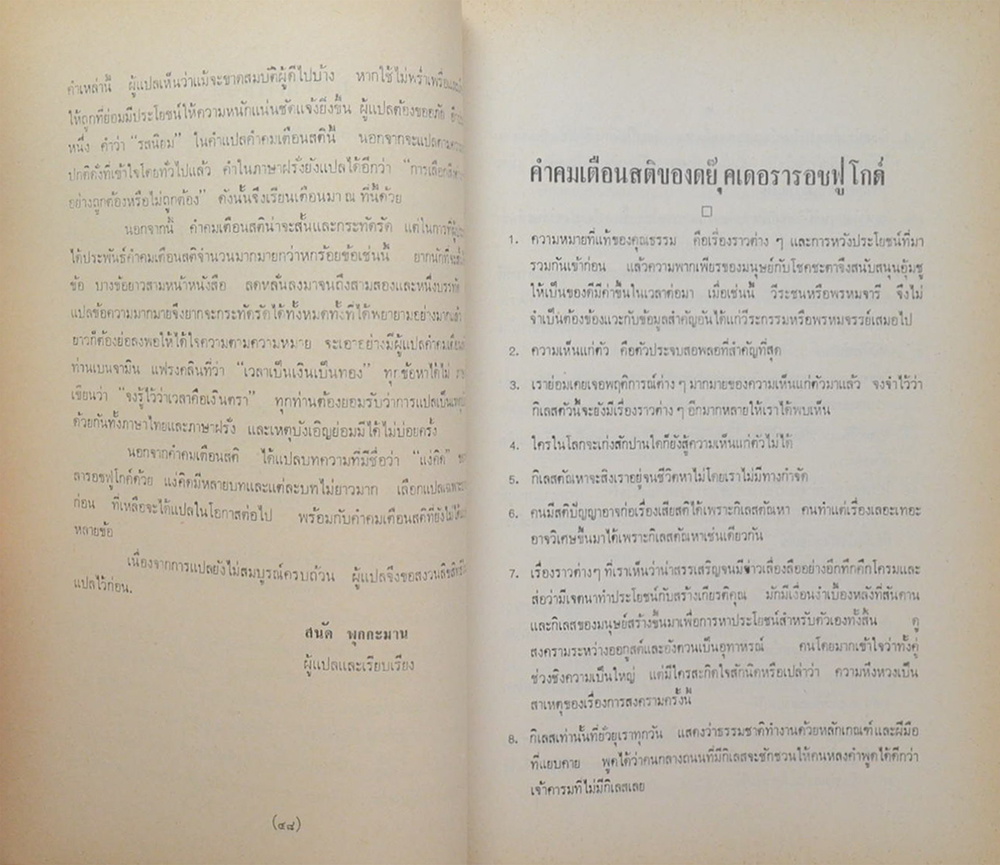 คำเหล่านี้ ผู้แปลเห็นว่าแม้จะขาดสมบัติผู้ดีไปบ้าง หากใช้ไม่พร่ำเพรื่อ
ให้ถูกที่ย่อมมีประโยชน์ให้ความหนักแน่นชัดแจ้งยิ่งขึ้น ผู้แปลต้องขออภัย
หนึ่ง คำว่า "รสนิยม" ในคำแปลคำคมเตือนสตินี้ นอกจากจะแปลตาม
ปกติดังที่เข้าใจโดยทั่วไปแล้ว คำในภาษาฝรั่งยังแปลได้อีกว่า "การเลือก
อย่างถูกต้องหรือไม่ถูกต้อง" ดังนั้นจึงเรียนเตือนมา ณ ที่นี้ด้วย
นอกจากนี้ คำคมเตือนสติน่าจะสั้นและกระทัดรัด แต่ในการที่
ได้ประพันธ์คำคมเตือนสติจำนวนมากมายกว่าหกร้อยข้อเช่นนี้ ยากนักที่จะ
ข้อ บางข้อยาวสามหน้าหนังสือ ลดหลั่นลงมาจนถึงสามสองและหนึ่งบรรทัด
แปลข้อความมากมายจึงยากจะกระทัดรัดได้ทั้งหมดทั้งที่ได้พยายามอย่างมาก
ยาวก็ต้องย่อลงพอให้ได้ใจความตามความหมาย จะเอาอย่างมีผู้แปลคำคม
ท่านเบนจามิน แฟรงคลินที่ว่า "เวลาเป็นเงินเป็นทอง" ทุกข้อหาได้ไม่
เขียนว่า "จงรู้ไว้ว่าเวลาคือเงินตรา" ทุกท่านต้องยอมรับว่าการแปลเป็น
ด้วยกันทั้งภาษาไทยและภาษาฝรั่ง และเหตุบังเอิญย่อมมีได้ไม่บ่อยครั้ง
นอกจากคำคมเตือนสติ ได้แปลบทความที่มีชื่อว่า "แง่คิด"
ลารอชฟูโกด์ด้วย แง่คิดมีหลายบทและแต่ละบทไม่ยาวมาก เลือกแปล
ก่อน ที่เหลือจะได้แปลในโอกาสต่อไป พร้อมกับคำคมเตือนสติที่ยังไม่ได้
หลายข้อ
เนื่องจากการแปลยังไม่สมบูรณ์ครบถ้วน ผู้แปลจึงขอสงวนลิขสิทธิ์
แปลไว้ก่อน.
สนัด พุกกะมาน
ผู้แปลและเรียบเรียง
(๔๘)
คำคมเตือนสติของดยุ๊คเดอรารอชฟูโกด์
1. ความหมายที่แท้ของคุณธรรม คือเรื่องราวต่าง ๆ และการหวังประโยชน์ที่มา
รวมกันเข้าก่อน แล้วความพากเพียรของมนุษย์กับโชคชะตาจึงสนับสนุนอุ้มชู
ให้เป็นของดีมีค่าขึ้นในเวลาต่อมา เมื่อเช่นนี้ วีระชนหรือพรหมจารี จึงไม่
จำเป็นต้องข้องแวะกับข้อมูลสำคัญอันได้แก่วีระกรรมหรือพรหมจรรย์เสมอไป
2. ความเห็นแก่ตัว คือตัวประจบสอพลอที่สำคัญที่สุด
3. เราย่อมเคยเจอพฤติการณ์ต่าง ๆ มากมายของความเห็นแก่ตัวมาแล้ว จงจำไว้ว่า
กิเลสตัวนี้จะยังมีเรื่องราวต่าง ๆ อีกมากหลายให้เราได้พบเห็น
4. ใครในโลกจะเก่งสักปานใดก็ยังสู้ความเห็นแก่ตัวไม่ได้
5. กิเลสตัณหาจะสิงเราอยู่จนชีวิตหาไม่โดยเราไม่มีทางกำจัด
6. คนมีสติปัญญาอาจก่อเรื่องเสียสติได้เพราะกิเลสตัณหา คนทำแต่เรื่องเลอะเทอะ
อาจวิเศษขึ้นมาได้เพราะกิเลสตัณหาเช่นเดียวกัน
7. เรื่องราวต่างๆ ที่เราเห็นว่าน่าสรรเสริญจนมีข่าวเลื่องลืออย่างอึกทึกคึกโครมและ
ส่อว่ามีเจตนาทำประโยชน์กับสร้างเกียรติคุณ มักมีเงื่อนงำเบื้องหลังที่สันดาน
และกิเลสของมนุษย์สร้างขึ้นมาเพื่อการหาประโยชน์สำหรับตัวเองทั้งสิ้น ดู
สงครามระหว่างออกูสต์และอังตวนเป็นอุทาหรณ์ คนโดยมากเข้าใจว่าทั้งคู่
ช่วงชิงความเป็นใหญ่ แต่มีใครสะกิดใจสักนิดหรือเปล่าว่า ความหึงหวงเป็น
สาเหตุของเรื่องการสงครามครั้งนี้
8. กิเลสเท่านั้นที่ยั่วยุเราทุกวัน แสดงว่าธรรมชาติทำงานด้วยหลักเกณฑ์และฝีมือ
ที่แยบคาย พูดได้ว่าคนกลางถนนที่มีกิเลสจะชักชวนให้คนหลงคำพูดได้ดีกว่า
เจ้าคารมที่ไม่มีกิเลสเลย